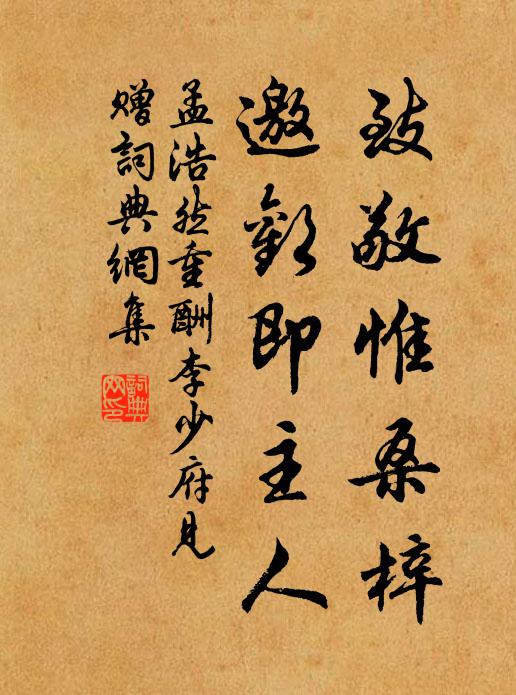 致敬惟桑梓
邀歡即主人
孟浩然重酬李少府見
贈詞典網集
詞典網印